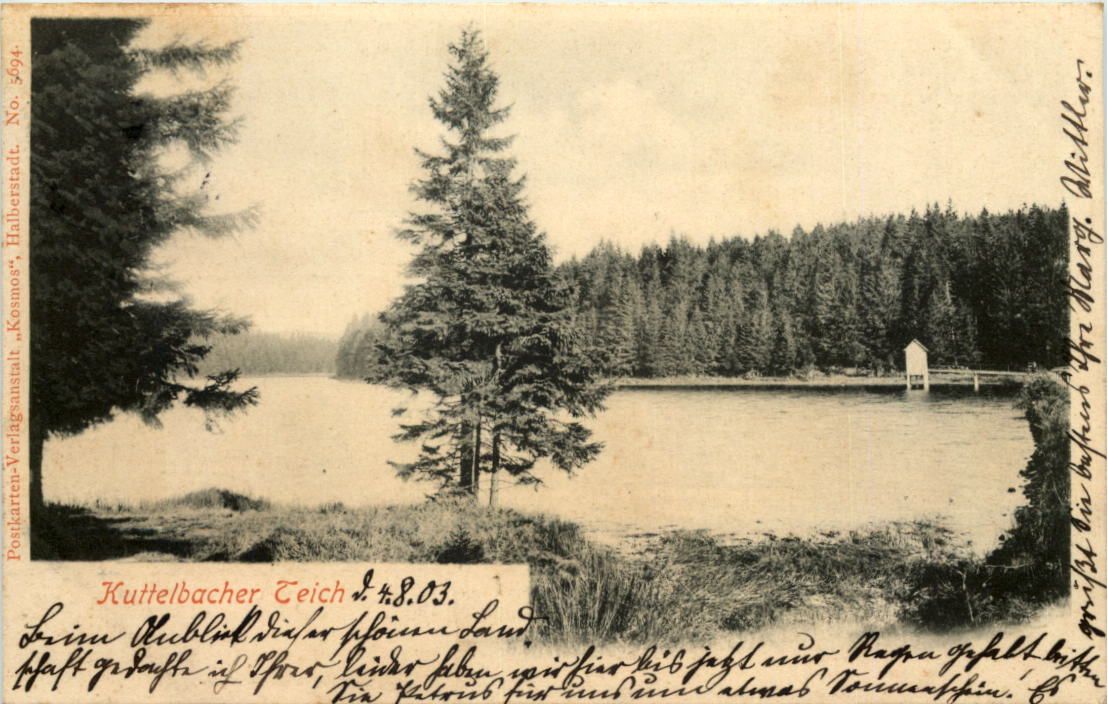 Postkarten-Verlagsanstalt „Kosmos“, Halberstadt. No. 5694.
Kuttelbacher Teich
d. 4.8.03.
Beim Anblick dieser schönen Land
schaft gedachte ich Ihrer, leider haben wir hier bis jetzt nur Regen gehabt, bitten
Sie Petrus für uns um etwas Sonnenschein. Es
grüßt Sie bestens Ihre Marg. Wittler.